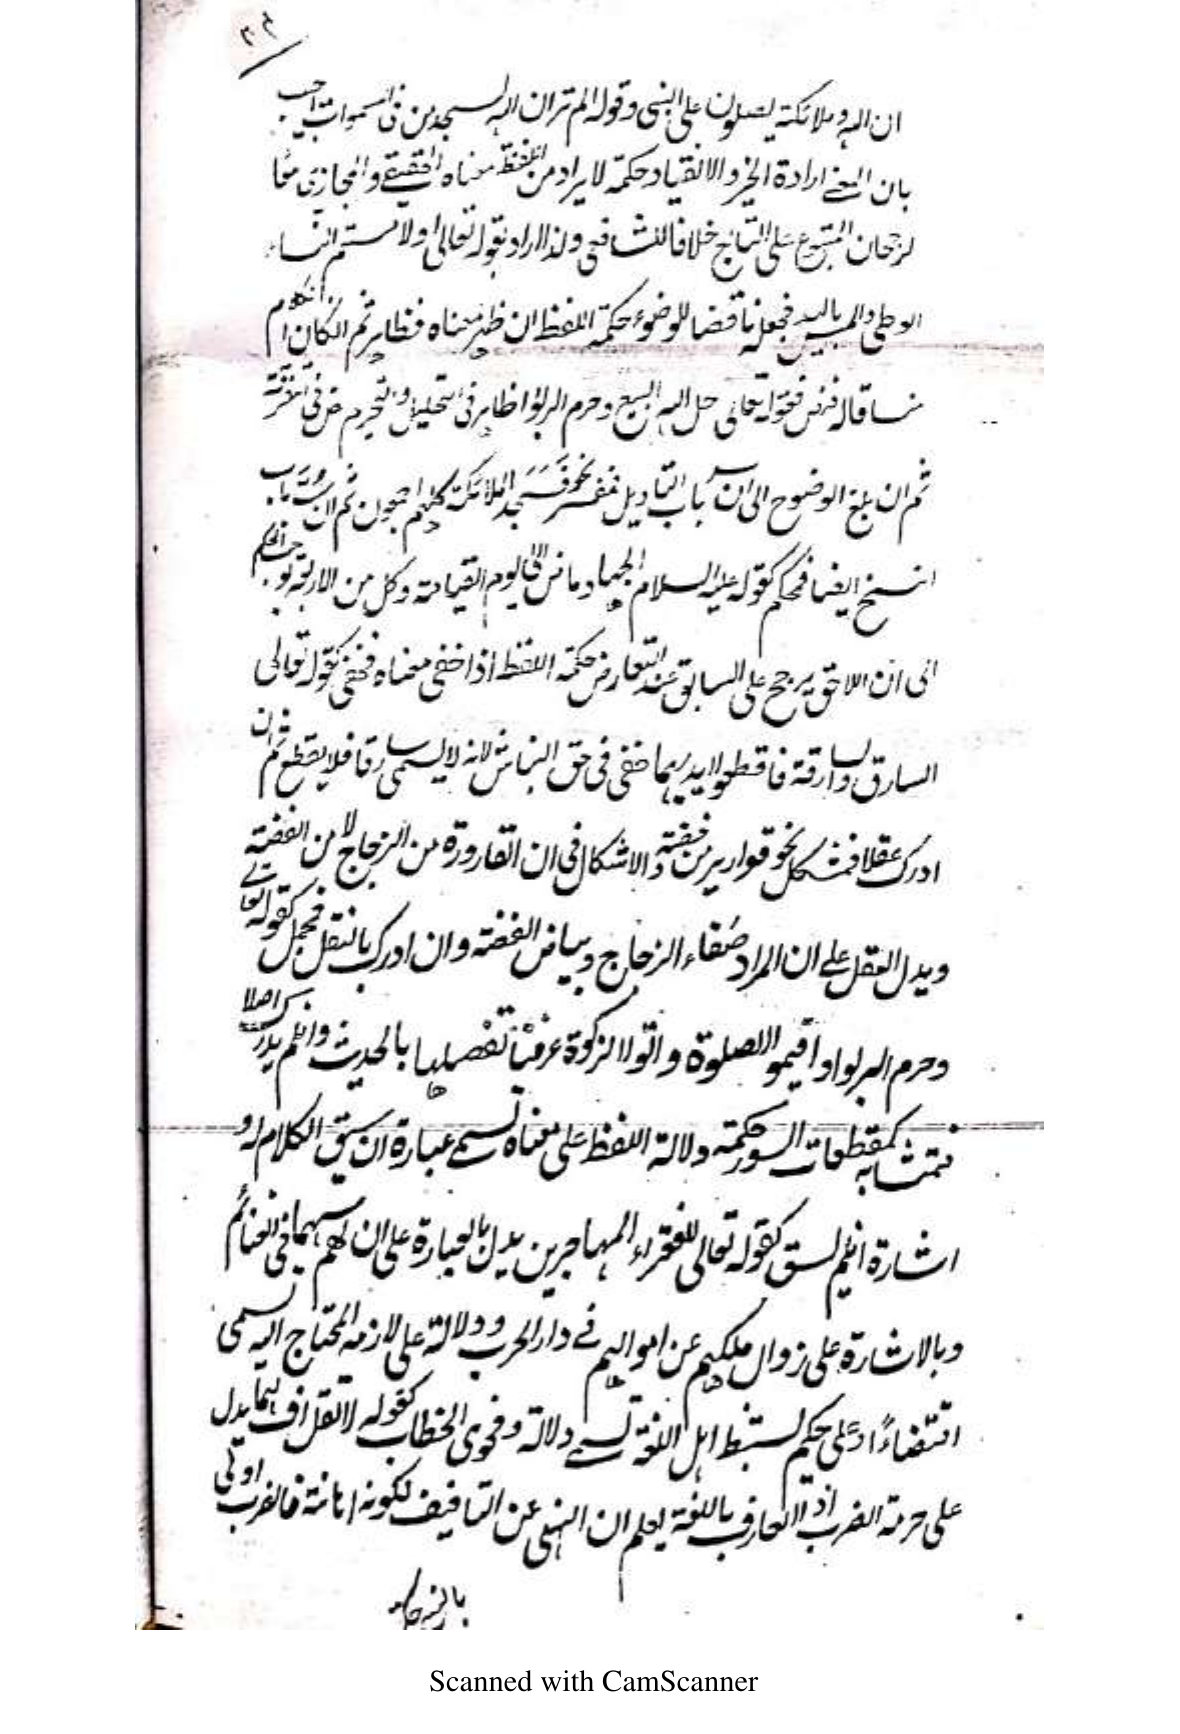 ٣٤
ان الله وملائكته يصلون على النبي وقوله الم تر ان الله يسجد من في السموات اجيب
بان المعنى ارادة الخير والانقياد حكمة لا يراد من اللفظ معناه الحقيقي والمجازي معًا
لرجحان المتبوع على التابع خلافا للشافعي ولذا اراد بقوله تعالى او لامستم النساء
الوطي والمس باليد فجعله ناقضا للوضوء حكمة اللفظ ان ظهر معناه فظاهر ثم ان كان الكلام
منساقا له فنص فقوله تعالى حل الله البيع وحرم الربوا ظاهر في التحليل والتحريم نص في التفرقة
ثم ان بلغ الوضوح الى ان سد باب التاويل فمفسر نحو فَسَجَدَ الملائكة كلهم اجمعون ثم ان سد باب
النسخ ايضا فمحكم كقوله عليه السلام الجهاد ماض الى يوم القيامة وكل من الاربعة يوجب الحكم
الى ان اللاحق يرجح على السابق عند التعارض حكمة اللفظ اذا خفي معناه فخفي كقوله تعالى
السارق والسارقة فاقطعوا ايديهما خفي في حق النباش لانه لا يسمى سارقا فلا يقطع ثم ان
ادرك عقلا فمشكل نحو قوارير من فضة والاشكال في ان القارورة من الزجاج لا من الفضة
ويدل العقل على ان المراد صفاء الزجاج وبياض الفضة وان ادرك بالنقل فمجمل كقوله تعالى
وحرم الربوا واقيموا الصلوة واتوا الزكوة عرفنا تفصيلها بالحديث وان لم يدرك اصلا
فمتشابه كمقطعات السور حكمة دلالة اللفظ على معناه تسمى عبارة ان سيق الكلام له و
اشارة ان لم يسق كقوله تعالى للفقراء المهاجرين يدل بالعبارة على ان لهم سهما في الغنائم
وبالاشارة على زوال ملكهم عن اموالهم في دار الحرب ودلالة على لازمه المحتاج اليه تسمى
اقتضاءً او على حكم يستنبط اهل اللغة تسمى دلالة وفحوى الخطاب كقوله لا تقل اف لهما يدل
على حرمة الضرب اذ العارف باللغة يعلم ان النهي عن التافيف لكونه اهانة فالضرب اولى
Scanned with CamScanner